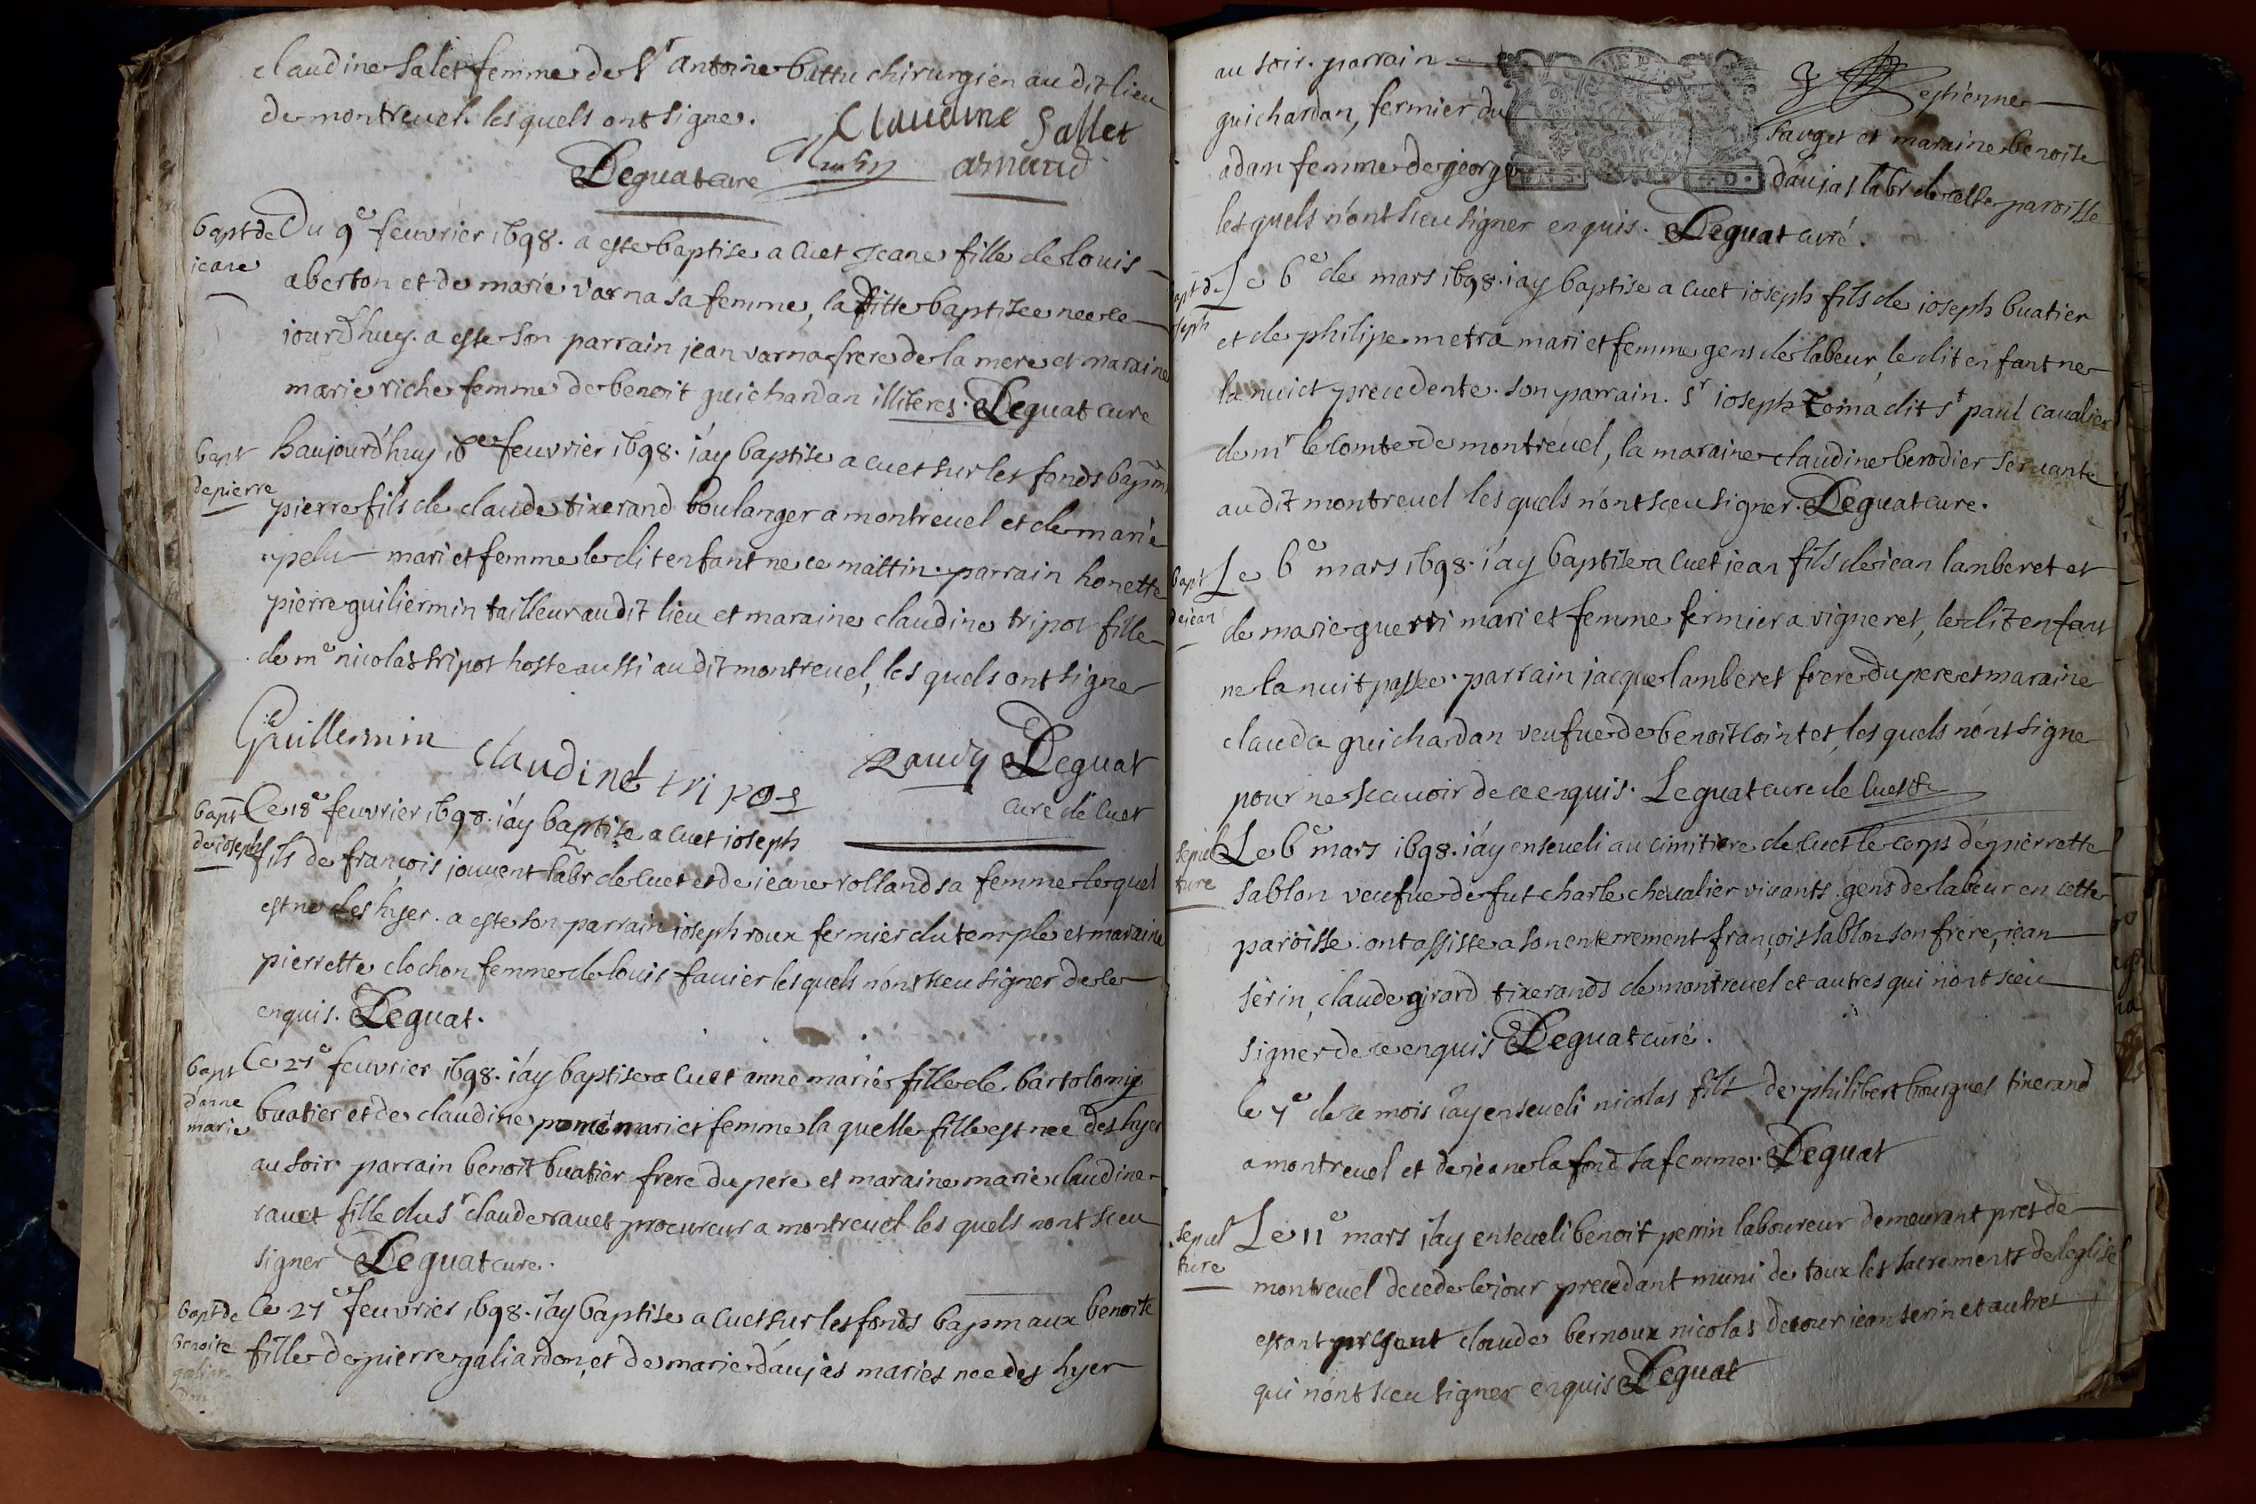 claudine salet femme de Sr antoine battu chirurgien au dit lieu
de montreuel. lesquels ont signe.
Claudine Sallet
Deguat cure
arnaud
bapt de
jeane
Du 9e feuvrier 1698. a este baptise a cuet Jeane fille de louis
aberton et de marie varna sa femme, la fitte baptisee nee ce
jourdhuy. a este son parrain jean varna frere de la mere et maraine
marie riche femme de benoit guichardan illiteres. Deguat cure
bapt
de pierre
haujourdhuy 16e feuvrier 1698. iay baptise a cuet sur les fonds bapm
pierre fils de claude tixerand boulanger a montreuel et de marie
pelu mari et femme le dit enfant ne ce mattin. parrain honette
pierre guiliermin tailleur audit lieu et maraine claudine tripot fille
de me nicolas tripot hoste aussi au dit montreuel, les quels ont signe
Guillermin
Claudine tripos
Deguat
cure de Cuet
bapt
de joseph
Ce 18e feuvrier 1698. iay baptise a cuet joseph
fils de françois jouvent labr de Cuet et de jeane rolland sa femme lequel
est ne des hyer. a este son parrain joseph roux fermier du temple et maraine
pierrette clochon femme de louis favier lesquels n'ont sceu signer de ce
enquis. Deguat.
bapt
d'anne
marie
Ce 27e feuvrier 1698. iay baptise a Cuet anne marie fille de bartolomy
buatier et de claudine pomé mari et femme la quelle fille est nee des hyer
au soir parrain benoit buatier frere du pere et maraine marie claudine
ravet fille du sr claude ravet procureur a montreuel les quels n'ont sceu
signer Deguat cure.
bapt de
benoite
Ce 27e feuvrier 1698. iay baptise a Cuet sur les fonds bapmaux benoite
fille de pierre galiardon, et de marie daujas maries nee des hyer
au soir. parrain estienne
guichardan, fermier du sauget et maraine benoite
adam femme de george daujas labr de cette paroisse
lesquels n'ont sceu signer enquis. Deguat curé.
bapt de
joseph
Le 6e de mars 1698. iay baptise a Cuet joseph fils de joseph buatier
et de philipe metra mari et femme gens de labeur, le dit enfant ne
la nuict precedente. son parrain. Sr joseph Toma dit st paul cavalier
de mr le comte de montreuel, la maraine claudine berodier servante
au dit montreuel les quels n'ont sceu signer. Deguat cure.
bapt
de jean
Le 6e mars 1698. iay baptise a Cuet jean fils de jean lamberet et
de marie guerri mari et femme fermier a vigneret, le dit enfant
ne la nuit passee. parrain jacque lamberet frere du pere et maraine
clauda guichardan veufue de benoit cointet, les quels n'ont signe
pour ne scavoir de ce enquis. Leguat cure de Cuet
sepul
ture
Le 6e mars 1698. iay enseueli au cimitiere de Cuet le corps de pierrette
sablon veufue de fut charle chevalier vivants gens de labeur en cette
paroisse. ont assiste a son enterrement françois sablon son frere, jean
serin, claude girard tixerands de montreuel et autres qui n'ont sceu
signer de ce enquis Deguat curé.
le 7e de ce mois iay enseueli nicolas fils de philibert bourgues tixerand
a montreuel et de jeane lafond sa femme. Deguat
sepul
ture
Le 11e mars iay enseueli benoit perrin laboureur demeurant pres de
montreuel decede le jour precedant muni de toux les sacrements de leglise
estant present claude bernoux nicolas decour jean serin et autres
qui n'ont sceu signer enquis Deguat